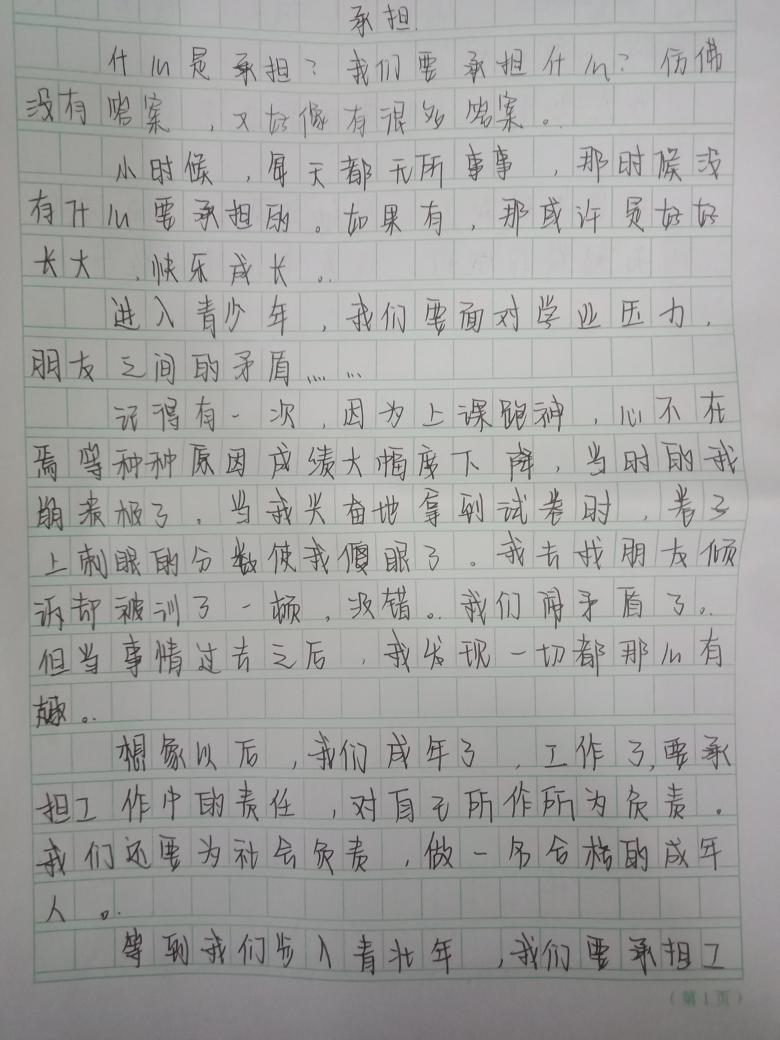 承担.
什么是承担？我们要承担什么？仿佛
没有答案，又好像有很多答案。
小时候，每天都无所事事，那时候没
有什么要承担的。如果有，那或许是好好
长大，快乐成长。
进入青少年，我们要面对学业压力，
朋友之间的矛盾……
记得有一次，因为上课跑神，心不在
焉等种种原因成绩大幅度下降，当时的我
崩溃极了。当我兴奋地拿到试卷时，卷子
上刺眼的分数使我傻眼了。我去找朋友倾
诉却被训了一顿，没错。我们闹矛盾了。
但当事情过去之后，我发现一切都那么有
趣。
想象以后，我们成年了，工作了，要承
担工作中的责任，对自己所作所为负责。
我们还要为社会负责，做一名合格的成年
人。
等到我们步入青壮年，我们要承担工
（第1页）